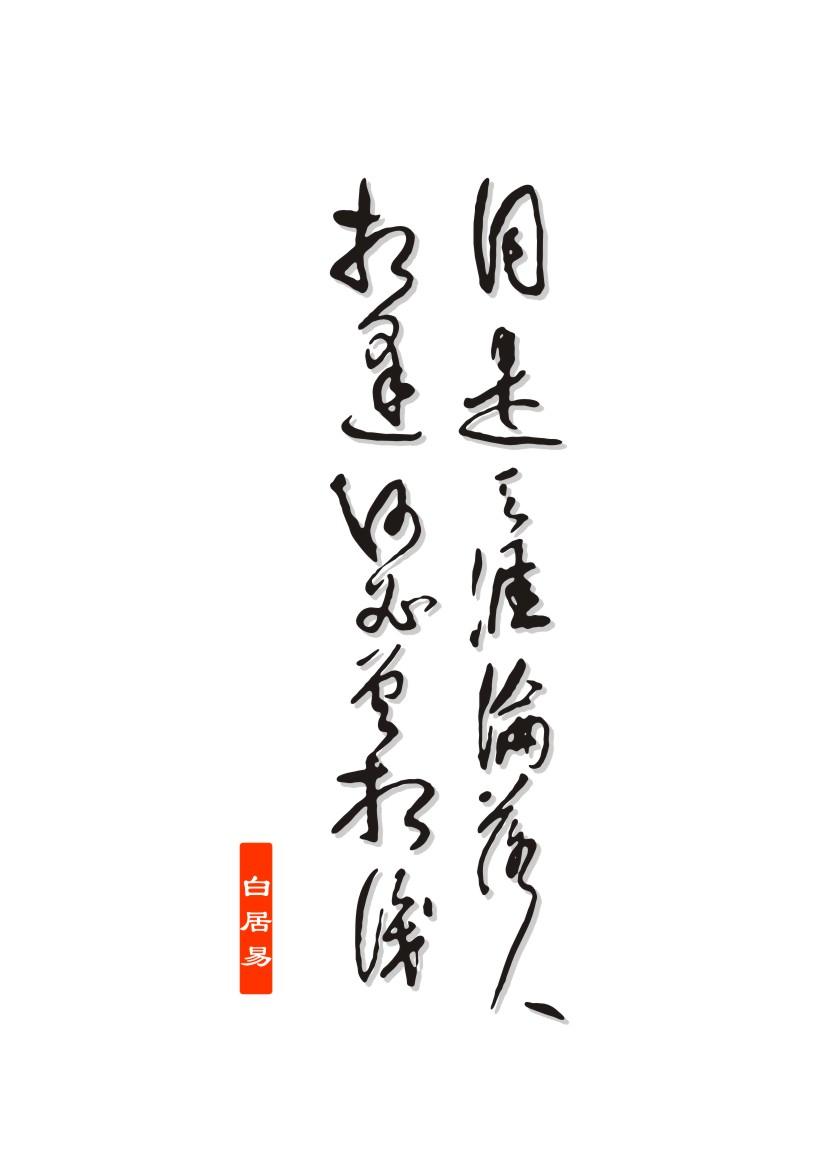 同是天涯淪落人
相逢何必曾相識
白居易